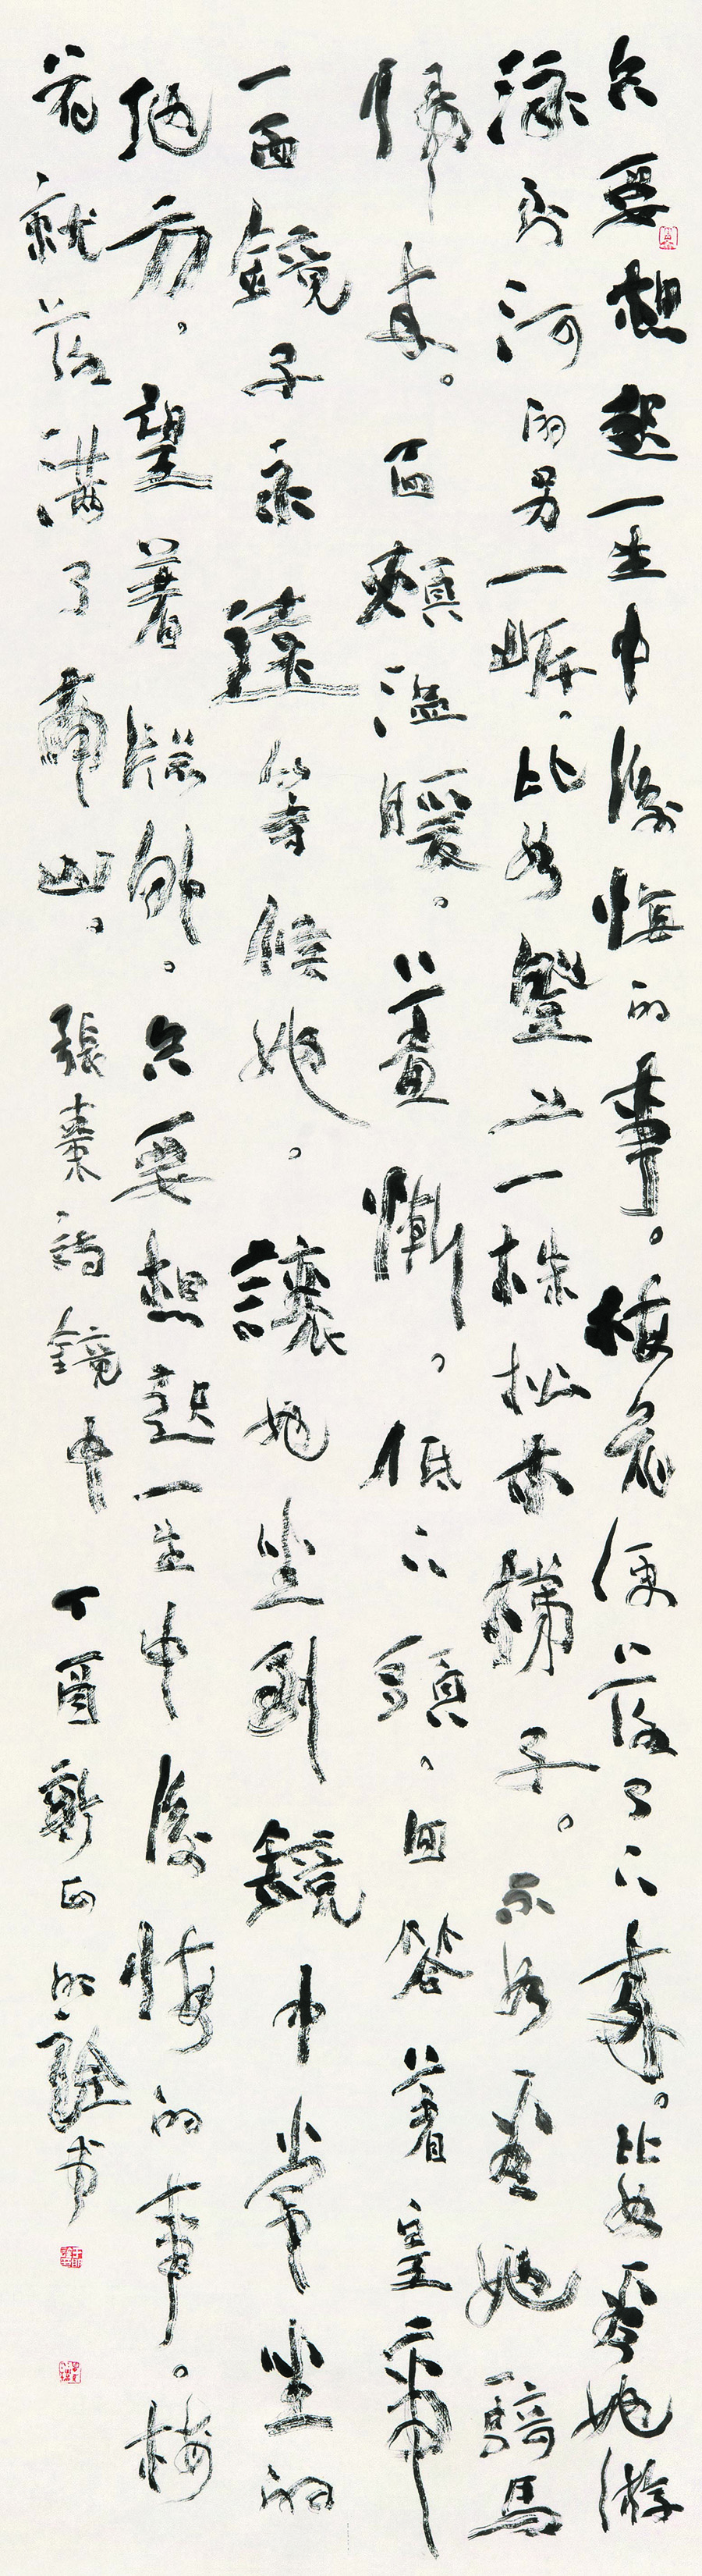 只要想起一生中後悔的事。梅花便落了下來。比如看她游
泳到河的另一岸。比如登上一株松木梯子。不如看她騎馬
歸來。面頰溫暖。羞慚。低下頭。回答著皇帝
一面鏡子永遠等候她。讓她坐到鏡中常坐的
地方。望著牕外。只要想起一生中後悔的事。梅
花就落滿了南山。張棗詩鏡中 丁酉新正明詮書